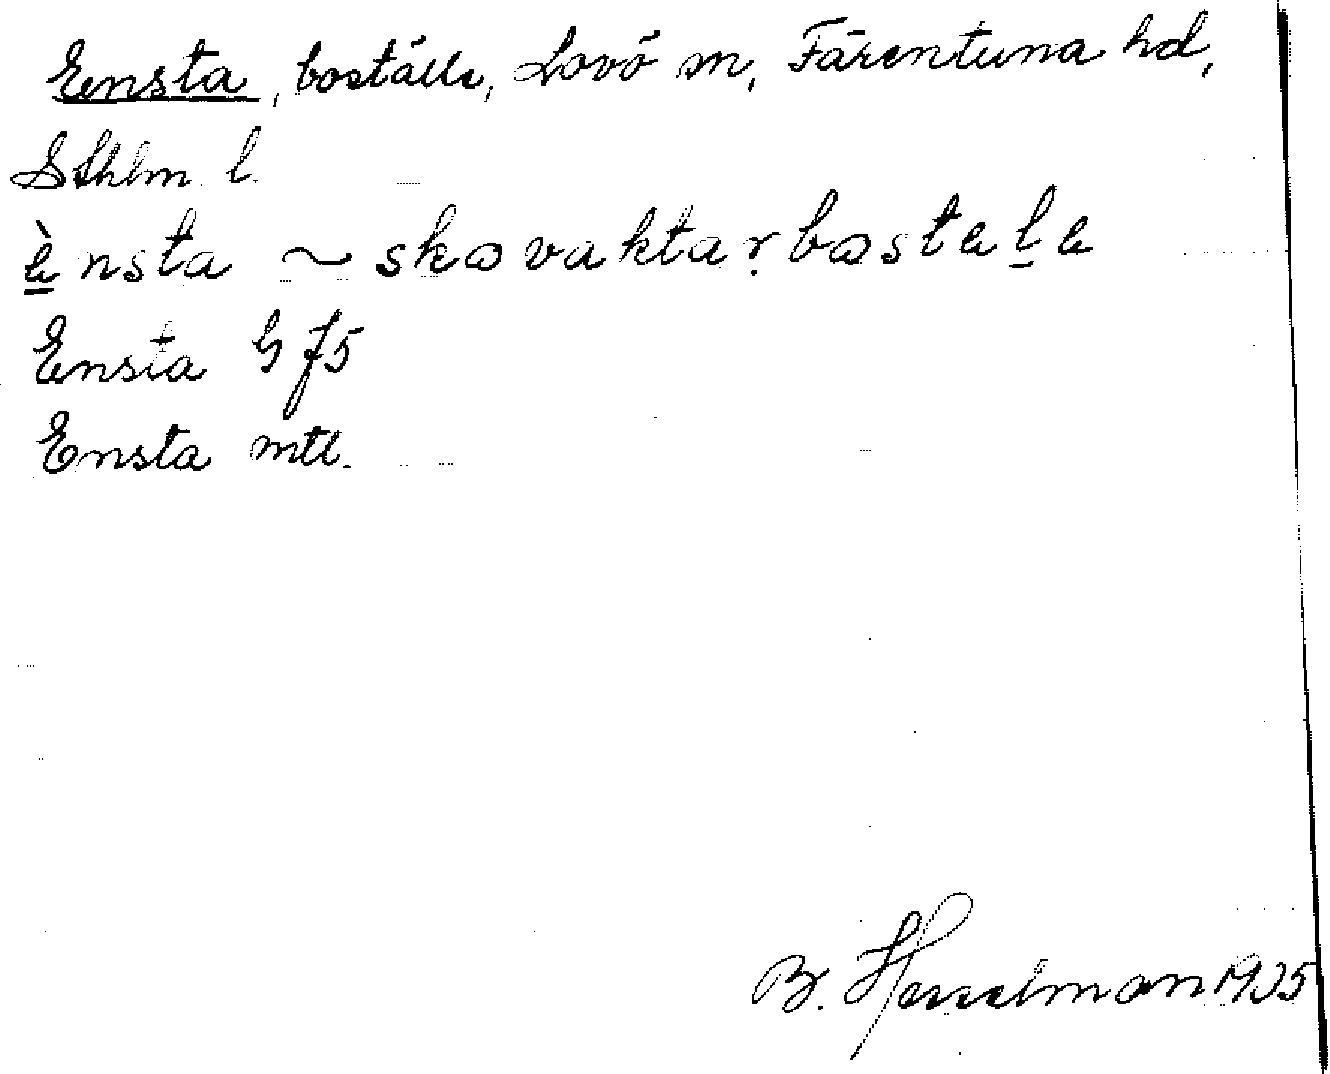 Ensta, boställe, Lovö sn, Färentuna hd,
Sthlm l.
ènsta ~ skovaktarbostele
Ensta G f5
Ensta mtl.
B. Hesselman 1935